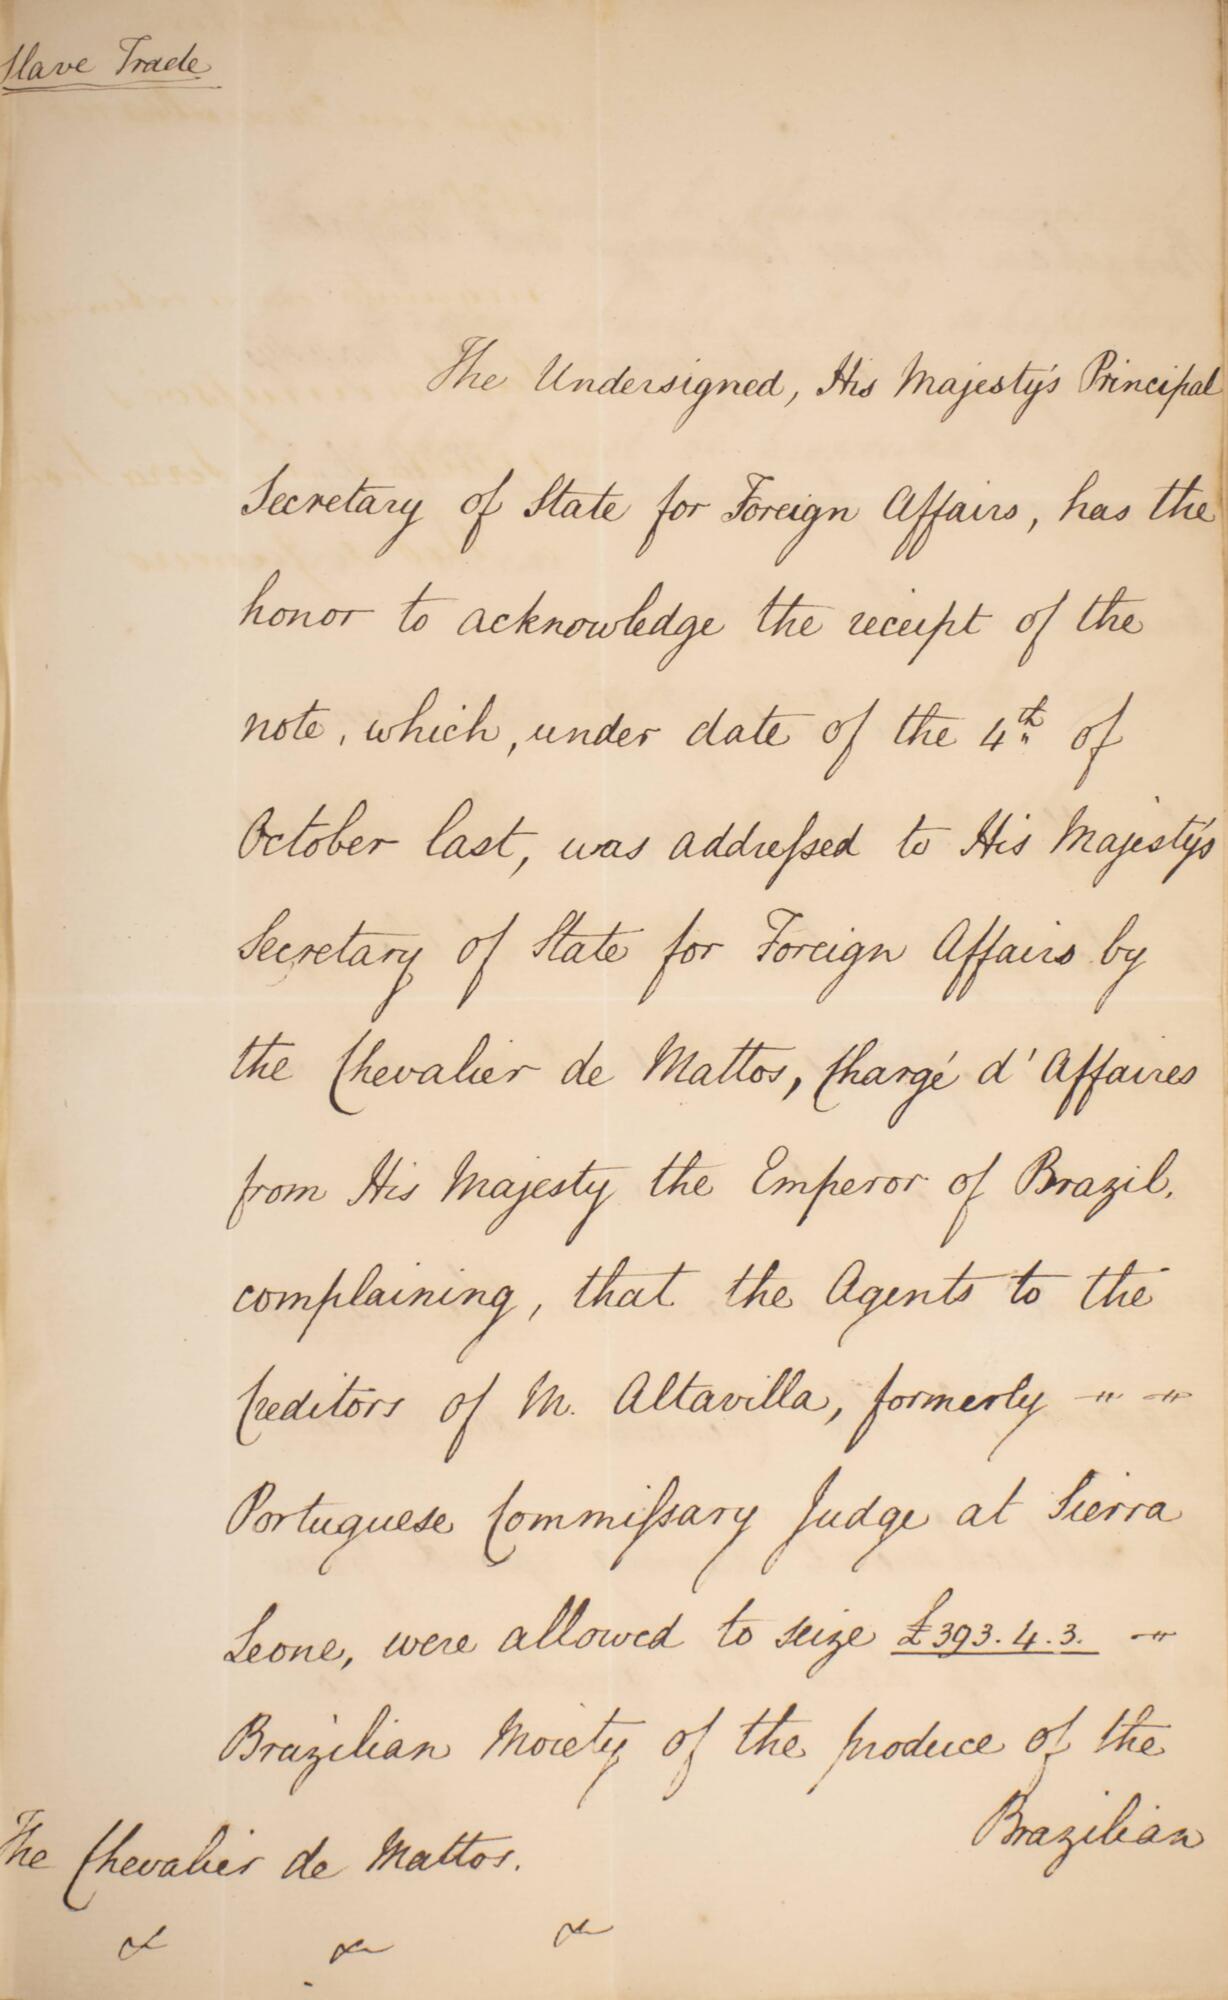 Slave Trade
The Undersigned, His Majesty's Principal
Secretary of State for Foreign Affairs, has the
honor to acknowledge the receipt of the
note, which, under date of the 4th of
October last, was addreſsed to His Majesty's
Secretary of State for Foreign Affairs by
the Chevalier de Mattos, Chargé d'Affaires
from His Majesty the Emperor of Brazil,
complaining, that the Agents to the
Creditors of M. Altavilla, formerly
Portuguese Commiſsary Judge at Sierra
Leone, were allowed to seize £393.4.3.
Brazilian Moiety of the produce of the
Brazilian
The Chevalier de Mattos.
& & &